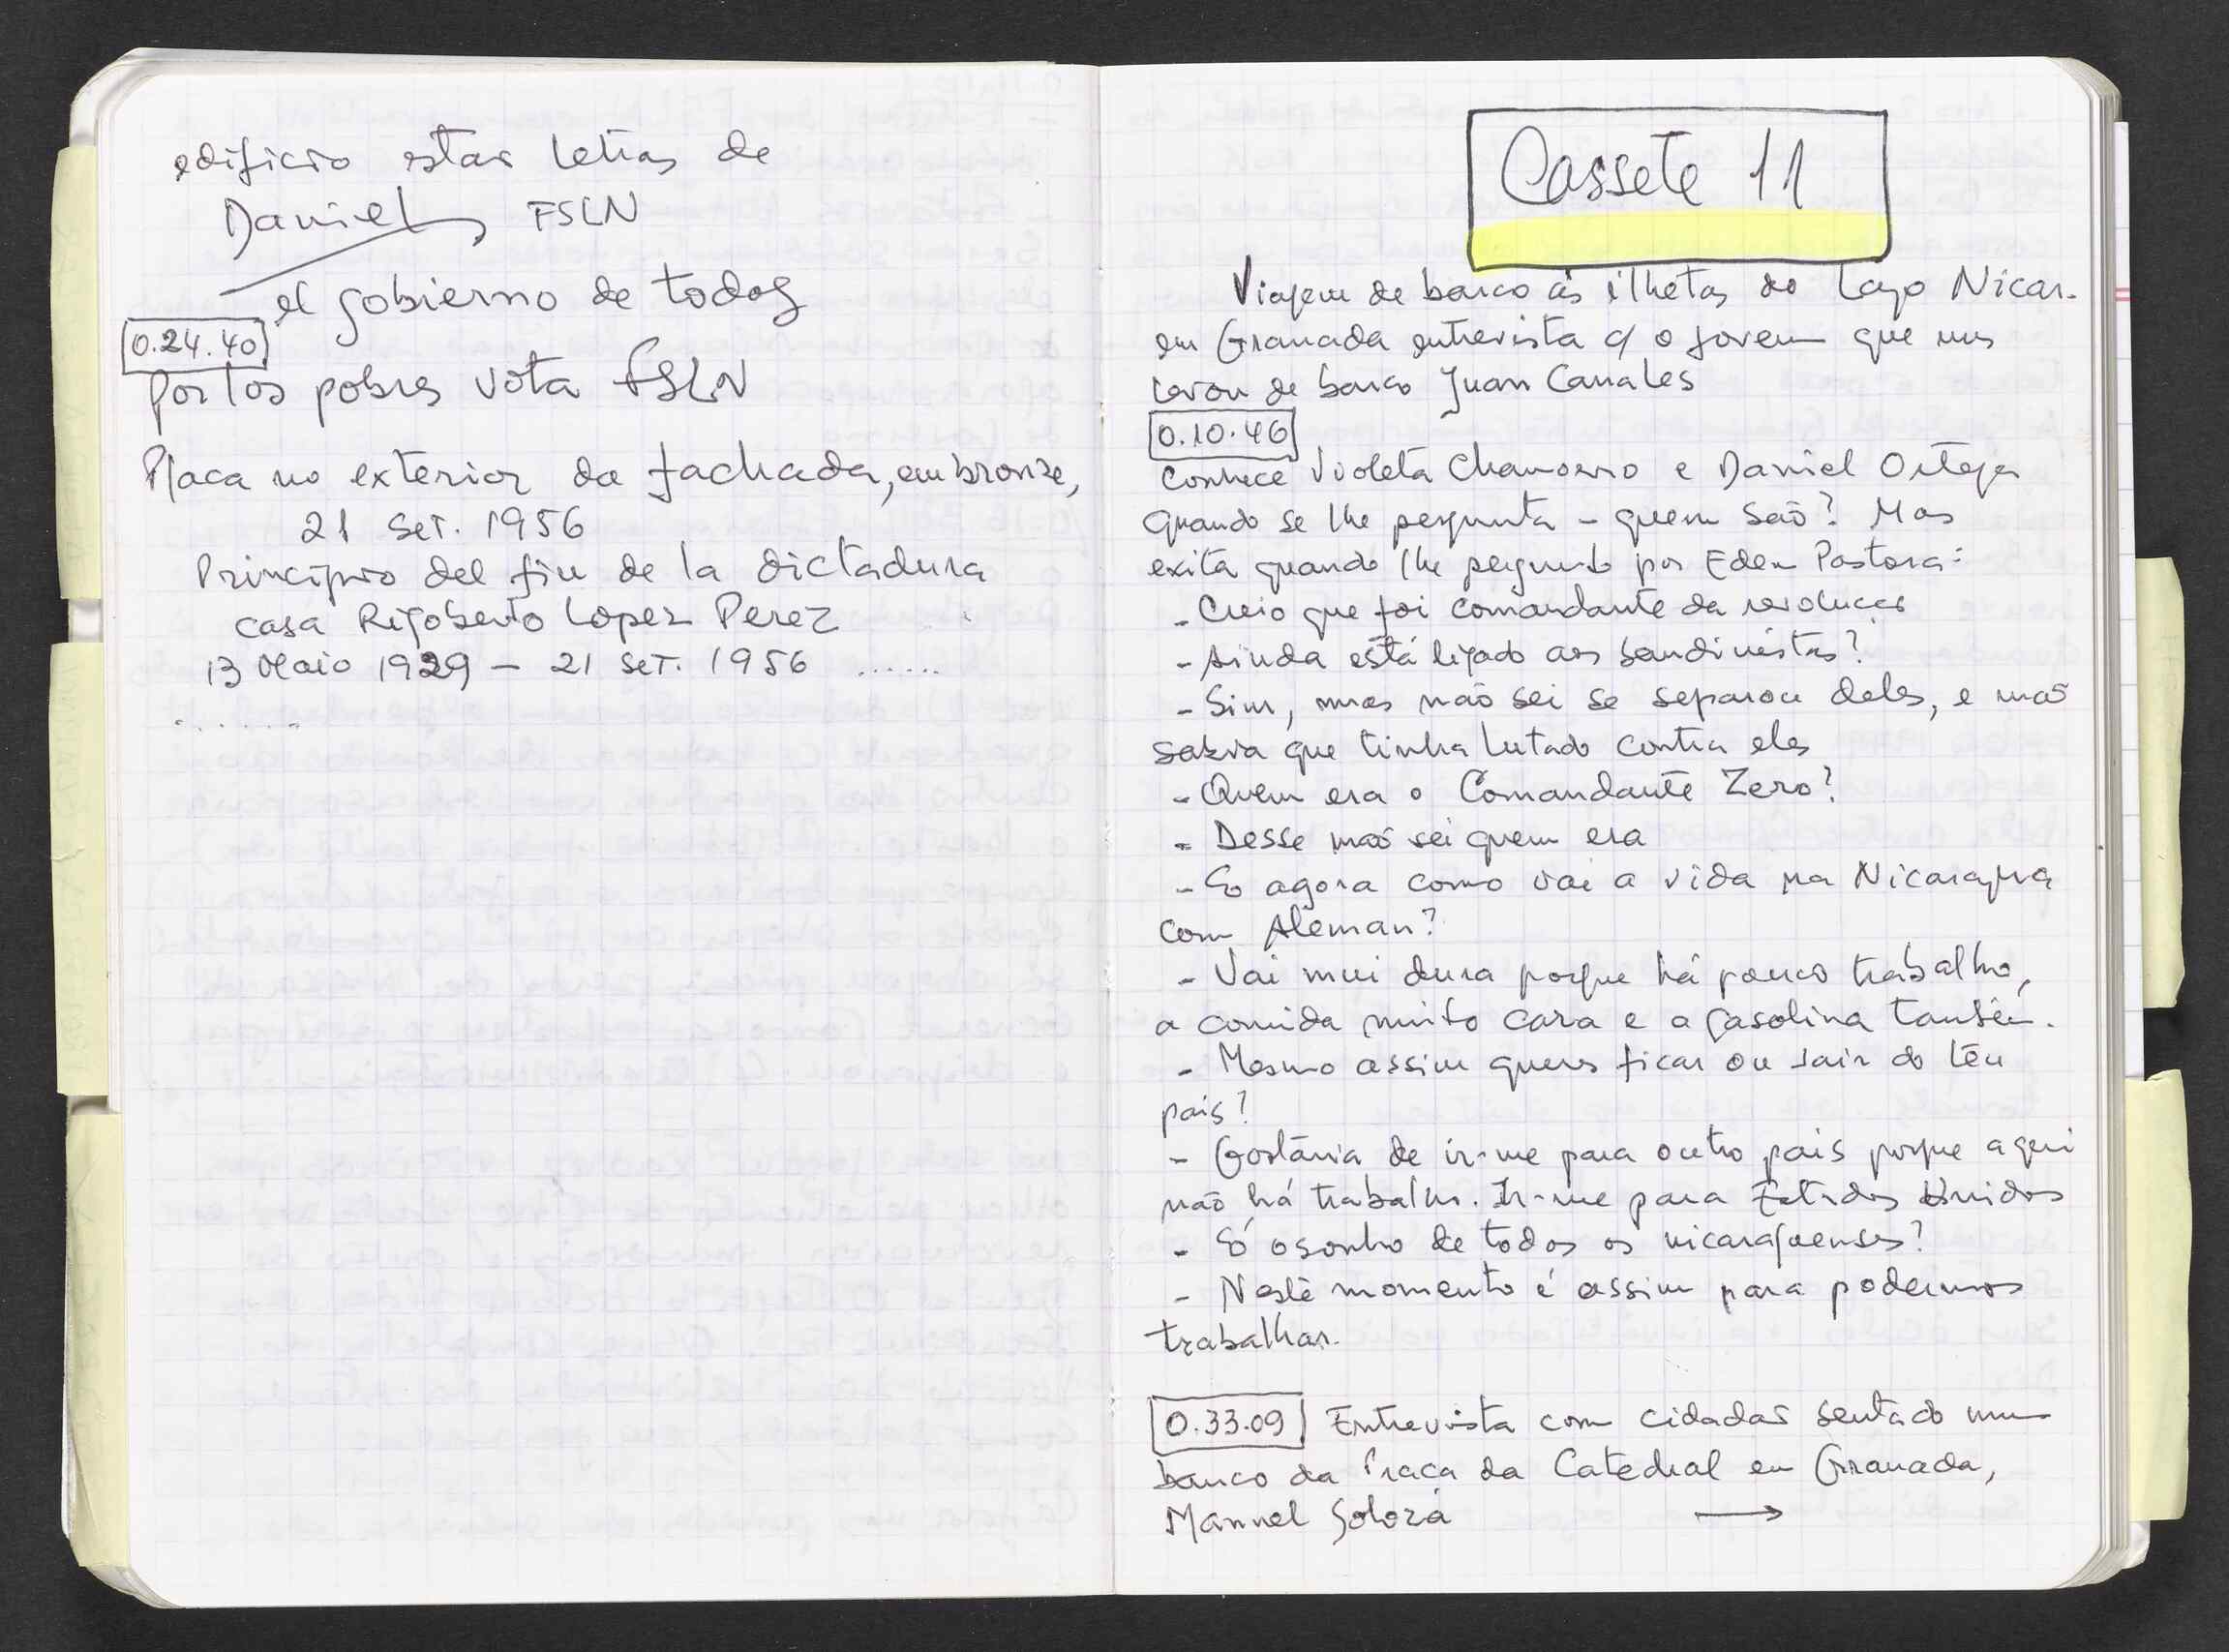 edificio estas letras de
Daniel, FSLN
el gobierno de todos
0.24.40
Por los pobres vota FSLN
Placa no exterior da fachada, em bronze,
21 SET. 1956
Principio del fin de la dictadura
casa Rigoberto Lopez Perez
13 Maio 1929 – 21 SET. 1956 ......
.......
Cassete 11
Viagem de barco às ilhetas do Lago Nicar.
em Granada entrevista c/ o jovem que nos
levou de barco Juan Canales
0.10.46
Conhece Violeta Chamorro e Daniel Ortega
quando se lhe pergunta – quem são? Mas
exita quando lhe pergunto por Eden Pastora:
- Creio que foi comandante da revolução
- Ainda está ligado aos sandinistas?
- Sim, mas não sei se separou deles, e não
sabia que tinha lutado contra eles
- Quem era o Comandante Zero?
- Desse não sei quem era
- E agora como vai a vida na Nicaragua
com Aleman?
- Vai mui dura porque há pouco trabalho,
a comida muito cara e a gasolina também.
- Mesmo assim queres ficar ou sair do teu
pais?
- Gostaria de ir-me para outro pais porque aqui
não há trabalho. Ir-me para Estados Unidos
- É o sonho de todos os nicaraguenses?
- Neste momento é assim para podermos
trabalhar.
0.33.09 Entrevista com cidadão sentado num
banco da Praça da Catedral em Granada,
Manuel Solorá →